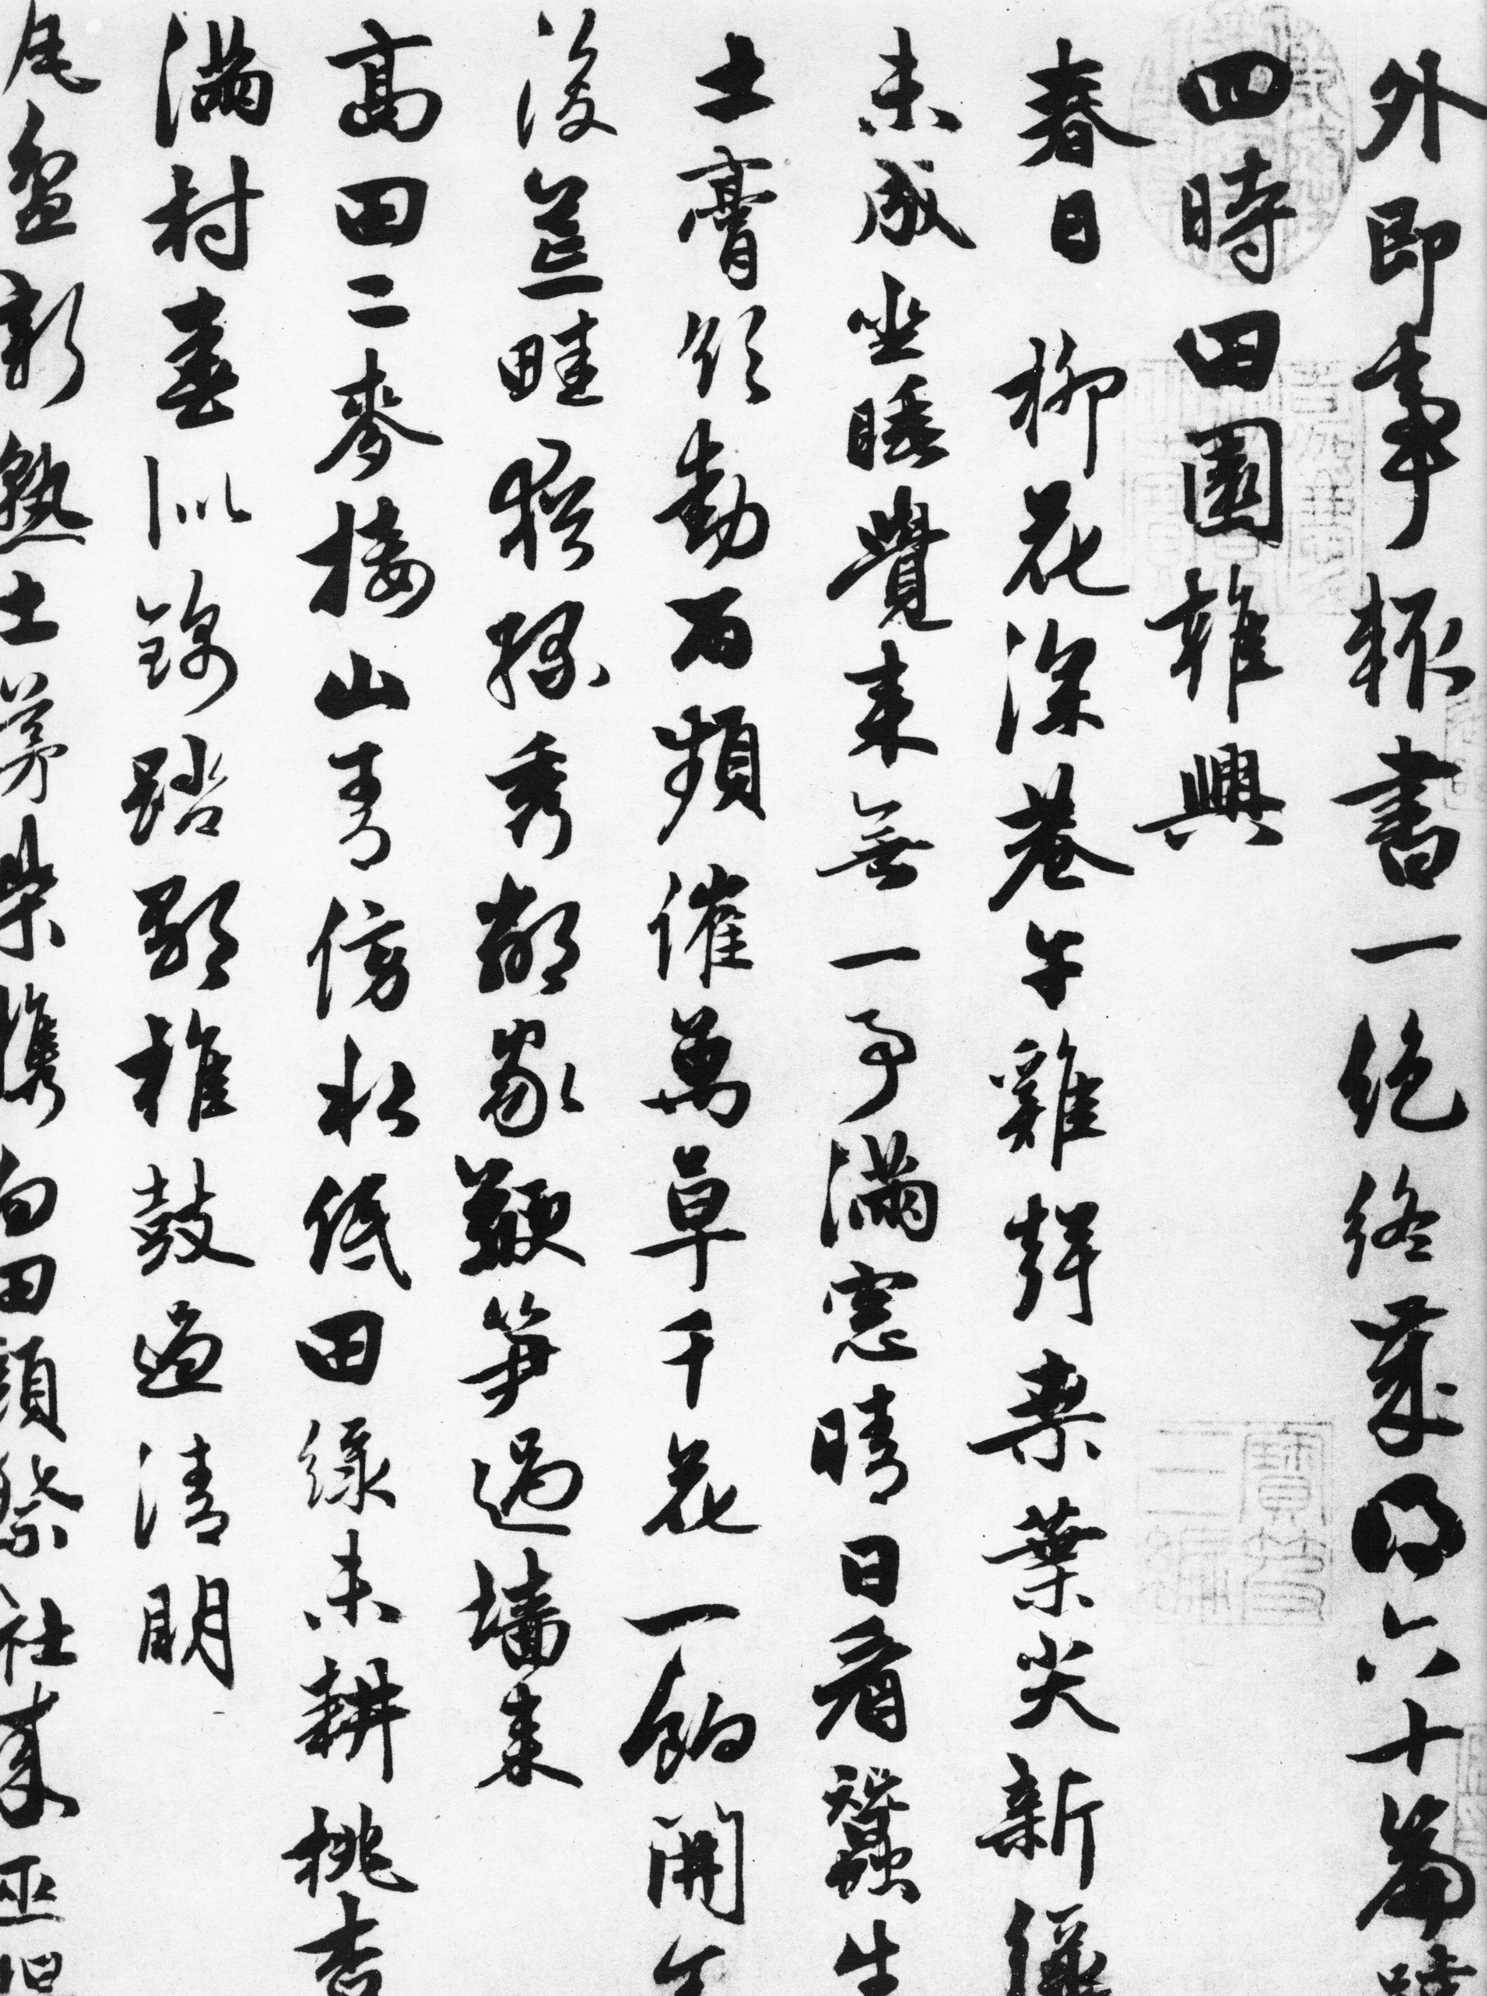 外即事輒書一絕終歲得六十篇號
四時田園雜興
春日 柳花深巷午雞聲桑葉尖新綠
未成坐睡覺来無一事滿窓晴日看蠶生
土膏欲動雨頻催萬草千花一餉開舍
後荒畦猶綠秀鄰家鞭笋過墻来
高田二麥接山青傍水低田綠未耕桃杏
滿村春似錦踏歌椎鼓過清明
盆新熟杜茅柴携向田頭祭社来巫媼